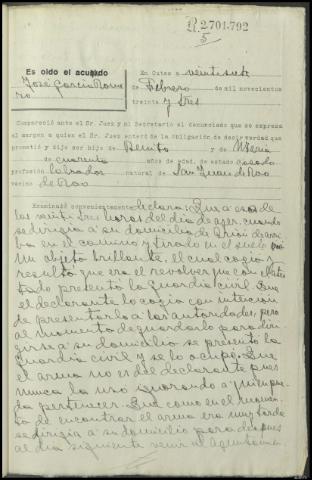 R 2.701.792
5
Es oido el acusado
José García Rome
ro
En Oates a veintiseis
de Febrero de mil novecientos
treinta y tres
Compareció ante el Sr. Juez y mi Secretario el denunciado que se expresa
al margen a quien el Sr. Juez enteró de la obligación de decir verdad que
prometió y dijo ser hijo de Benito y de María
de cuarenta años de edad, de estado casado
profesión labrador natural de San Juan de Roo
vecino de Roo
Examinado convenientemente declara: Que a eso de
las veinti tres horas del día de ayer, cuando
se dirigía a su domicilio de
ba en el camino y tirado en el suelo vió
un objeto brillante, el cual cogió y
resultó que era el revolver que con el ates
tado presentó la Guardia civil. Que
el declarante lo cogió con intención
de presentarlo a las autoridades, pero
al momento de guardarlo para diri
girse a su domicilio se presentó la
Guardia civil y se lo ocupó. Que
el arma no es del declarante pues
nunca la usó ignorando a quien pue
da pertenecer. Que como en el momen
to de encontrar el arma era muy tarde
se dirigía a su domicilio para después
al día siguiente venir al